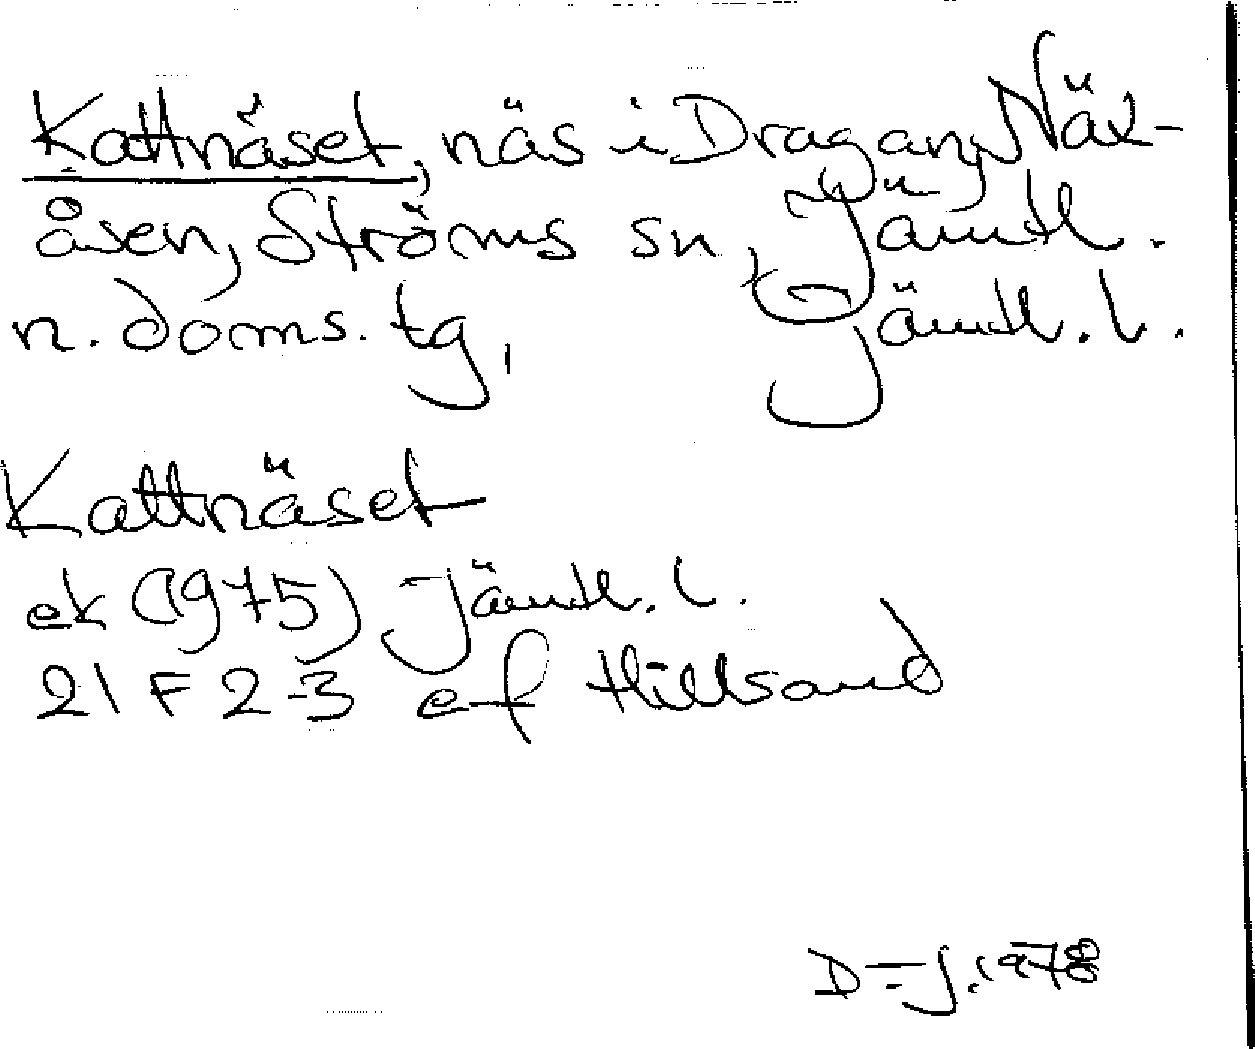 Kattnäset, näs i Dragan, Näx-
åsen, Ströms sn, Jämtl.
n. doms. tg, Jämtl. l.
Kattnäset
ek (1975) Jämtl. l.
21 F 2-3 ef Hillsand
D=J. 1978